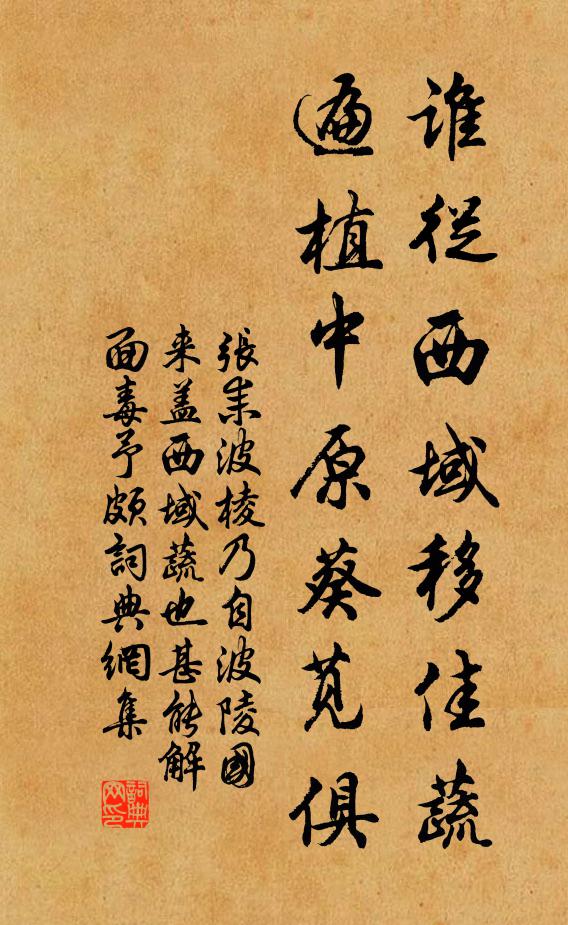 誰從西域移佳蔬
遍植中原葵莧俱
張耒波棱乃自波陵國
来盖西域蔬也甚能解
面毒予颇詞典網集
詞典
网印